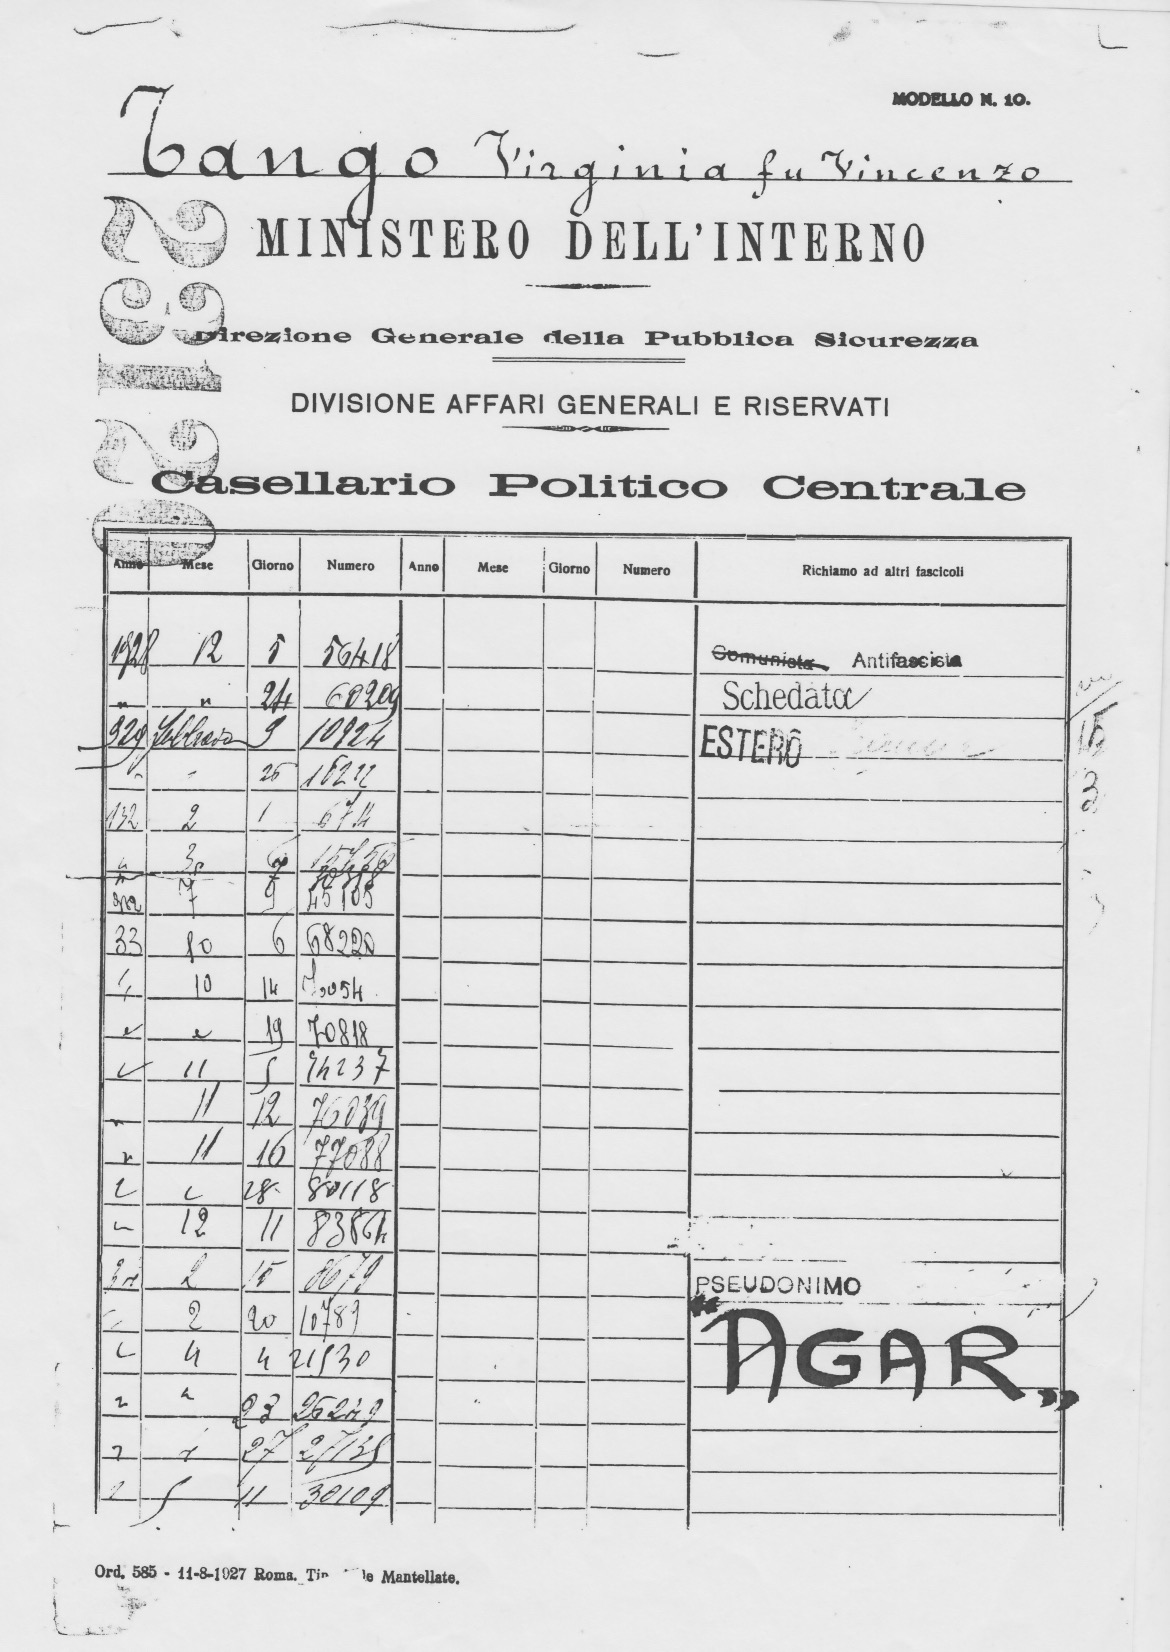 MODELLO N. 10.
Tango Virginia fu Vincenzo
MINISTERO DELL'INTERNO
Direzione Generale della Pubblica Sicurezza
DIVISIONE AFFARI GENERALI E RISERVATI
Casellario Politico Centrale
023132
Anno Mese Giorno Numero Anno Mese Giorno Numero Richiamo ad altri fascicoli
1928 12 5 56418 Comunista Antifascista
" " 24 60209 Schedata
929 febbraio 9 10924 ESTERO
" " 25 16222
132 2 1 6714
" 3
7 9 45105
33 10 6 68220
" 10 14 70054
" " 19 70818
" 11 5 74237
" 11 12 76039
" 11 16 77088
" " 28 80118
" 12 11 83864
34 2 15 8679
" 2 20 10789 PSEUDONIMO
" 4 4 21530 "AGAR"
" " 23 25249
" " 27 27135
" 5 11 30109
Ord. 585 - 11-8-1927 Roma. Tip le Mantellate.